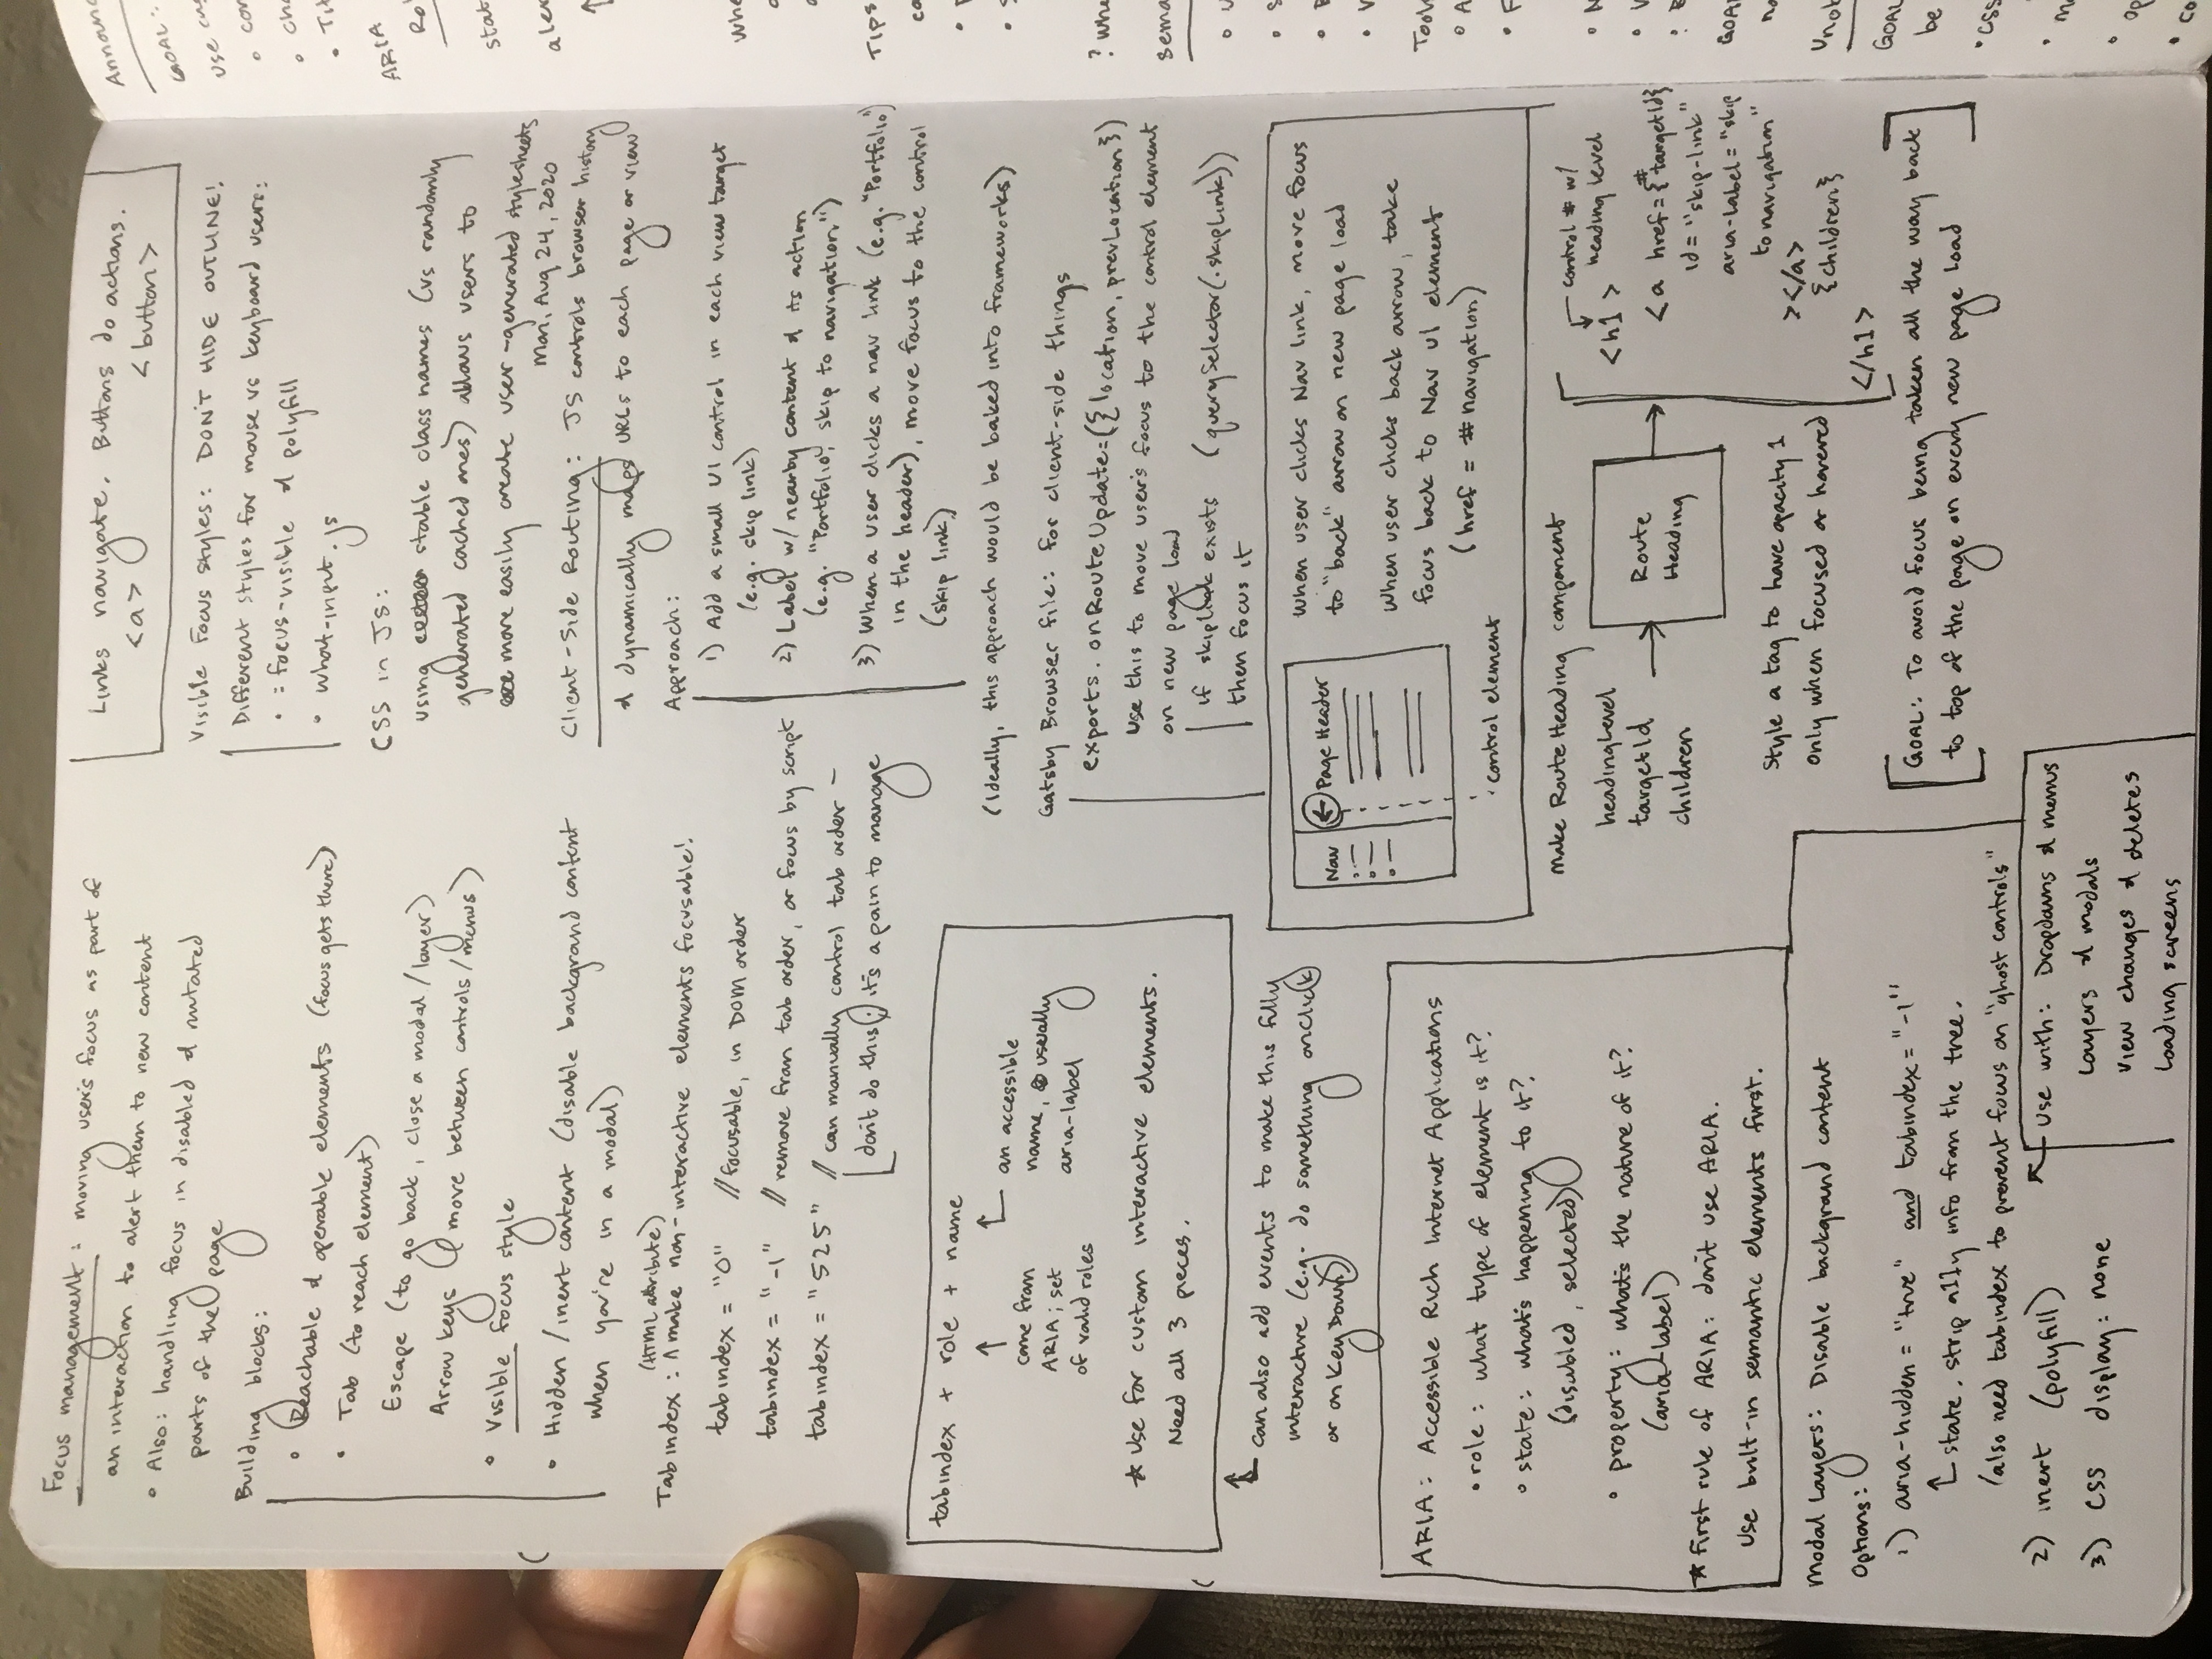 Focus management: moving user's focus as part of
an interaction to alert them to new content
• Also: handling focus in disabled & mutated
parts of the page
Building blocks:
• Reachable & operable elements (focus gets there)
• Tab (to reach element)
Escape (to go back, close a modal/layer)
Arrow keys (move between controls/menus)
• Visible focus style
• Hidden/inert content (disable background content
when you're in a modal)
(HTML attribute)
Tabindex: ^ make non-interactive elements focusable!
tabindex = "0" // focusable, in DOM order
tabindex = "-1" // remove from tab order, or focus by script
tabindex = "525" // can manually control tab order –
don't do this; it's a pain to manage
tabindex + role + name
↑
come from
ARIA; set
of valid roles
an accessible
name, usually
aria-label
* Use for custom interactive elements.
Need all 3 pieces.
can also add events to make this fully
interactive (e.g. do something onclick
or onKeyDown)
ARIA: Accessible Rich Internet Applications
• role: what type of element is it?
• state: what's happening to it?
(disabled, selected)
• property: what's the nature of it?
(aria-label)
* First rule of ARIA: don't use ARIA.
Use built-in semantic elements first.
Modal Layers: Disable background content
Options:
1) aria-hidden = "true" and tabindex = "-1"
state. strip a11y info from the tree.
(also need tabindex to prevent focus on "ghost controls"
2) inert (polyfill)
3) CSS display: none
Use with: Dropdowns & menus
Layers & modals
View changes & deletes
Loading screens
Links navigate. Buttons do actions.
<a> <button>
Visible Focus styles: DON'T HIDE OUTLINE!
Different styles for mouse vs keyboard users:
• :focus-visible & polyfill
• what-input.js
CSS in JS:
using stable class names (vs randomly
generated cached ones) allows users to
more easily create user-generated stylesheets
Mon, Aug 24, 2020
Client-Side Routing: JS controls browser history
& dynamically maps URLs to each page or view
Approach:
1) Add a small UI control in each view target
(e.g. skip link)
2) Label w/ nearby content & its action
(e.g. "Portfolio, skip to navigation")
3) When a user clicks a nav link (e.g. "Portfolio"
in the header), move focus to the control
(skip link)
(Ideally, this approach would be baked into frameworks)
Gatsby Browser file: for client-side things
exports.onRouteUpdate=({location, prevLocation})
use this to move user's focus to the control element
on new page load
if skiplink exists (querySelector(.skiplink))
then focus it
Nav
← Page Header
control element
When user clicks Nav link, move focus
to "back" arrow on new page load
When user clicks back arrow, take
focus back to Nav UI element
(href = #navigation)
Make RouteHeading component
headingLevel
targetId
children
Route
Heading
control # w/
heading level
<h1>
<a href={#targetId}
id="skip-link"
aria-label="skip
to navigation"
></a>
{children}
</h1>
Style a tag to have opacity 1
only when focused or hovered
GOAL: To avoid focus being taken all the way back
to top of the page on every new page load
GOAL:
ARIA
TIPS